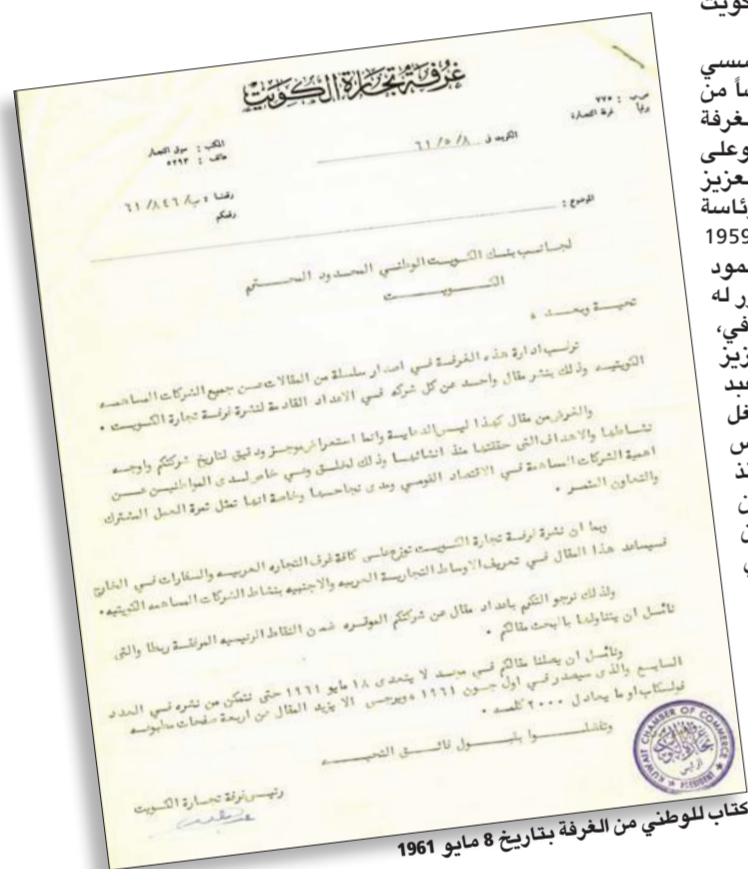 غرفة تجارة الكويت
ص.ب : ٧٧٥
برقيا غرفة التجارة
الكويت في ٦١/٥/٨
المكتب : سوق التجار
هاتف : ٥٢٩٣
رقمنا ٦١/٨٤٦/
رقمكم
الموضوع :
لجانب بنك الكويت الوطني المحدود المحترم
الكويت
تحية وبعد ،
ترغب ادارة هذه الغرفة في اصدار سلسلة من المقالات عن جميع الشركات المساهمه
الكويتيه وذلك بنشر مقال واحد عن كل شركه في الاعداد القادمة لنشرة غرفة تجارة الكويت .
والغرض من مقال كهذا ليس الدعاية وانما استعراض موجز ودقيق لتاريخ شركتكم واوجه
نشاطها والاهداف التي حققتها منذ انشائها وذلك لخلق وعي خاص لدى المواطنين عن
اهمية الشركات المساهمة في الاقتصاد القومي ومدى نجاحها وخاصة انها تمثل ثمرة العمل المشترك
والتعاون المثمر .
وبما ان نشرة غرفة تجارة الكويت توزع على كافة غرف التجاره العربيه والسفارات في الخارج
فسيساعد هذا المقال في تعريف الاوساط التجارية العربيه والاجنبيه بنشاط الشركات المساهمه الكويتيه .
ولذلك نرجو التكرم باعداد مقال عن شركتكم الموقره ضمن النقاط الرئيسيه المرفقة ربطا والتي
نأمل ان يتناولها بالبحث مقالكم .
ونأمل ان يصلنا مقالكم في موعد لا يتعدى ١٨ مايو ١٩٦١ حتى نتمكن من نشره في العدد
السابع والذي سيصدر في اول جون ١٩٦١ ويرجى الا يزيد المقال عن اربعة صفحات مطبوعه
فولسكاب او ما يعادل ٢٠٠٠ كلمه .
وتفضلوا بقبول فائق التحيه
رئيس غرفة تجارة الكويت
KUWAIT CHAMBER OF COMMERCE
الرئيس
PRESIDENT
كتاب للوطني من الغرفة بتاريخ 8 مايو 1961
كويت
سسي
ساً من
لغرفة
وعلى
لعزيز
ئاسة
1959
مود
ور له
في،
زيز
عبد
غل
س
نذ
ن